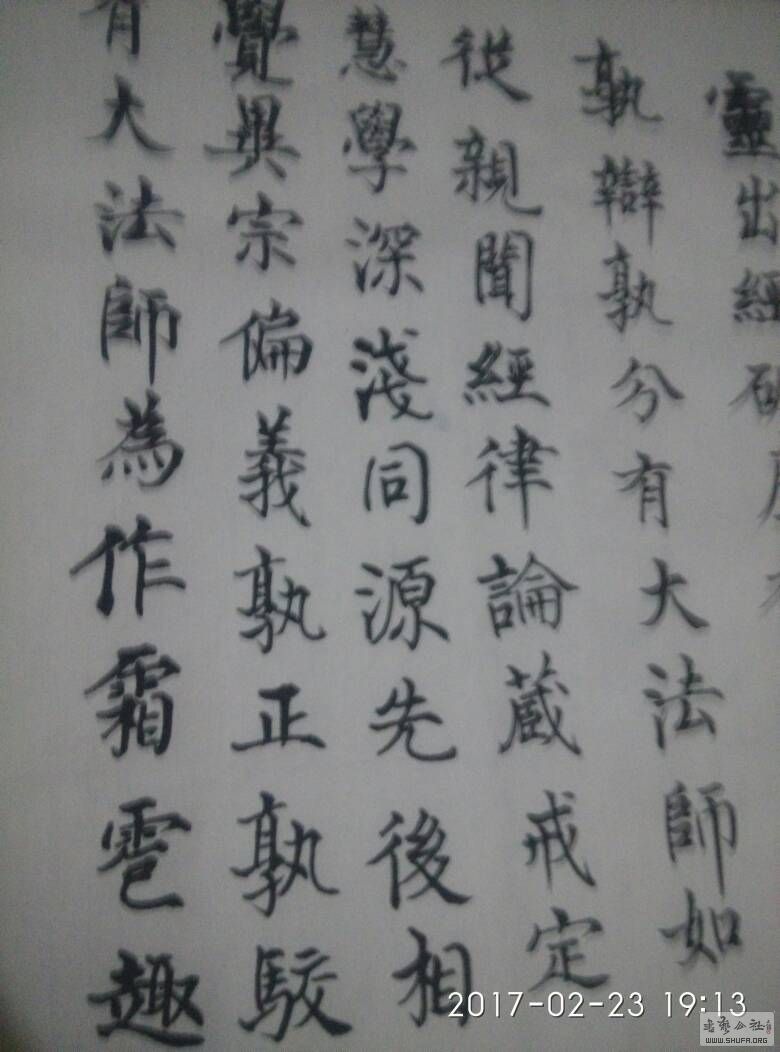 靈出經破
孰辯孰分有大法師如
從親聞經律論藏戒定
慧學深淺同源先後相
覺異宗偏義孰正孰駮
有大法師為作霜雹趣
2017-02-23 19:13
書藝公社
WWW.SHUFA.ORG